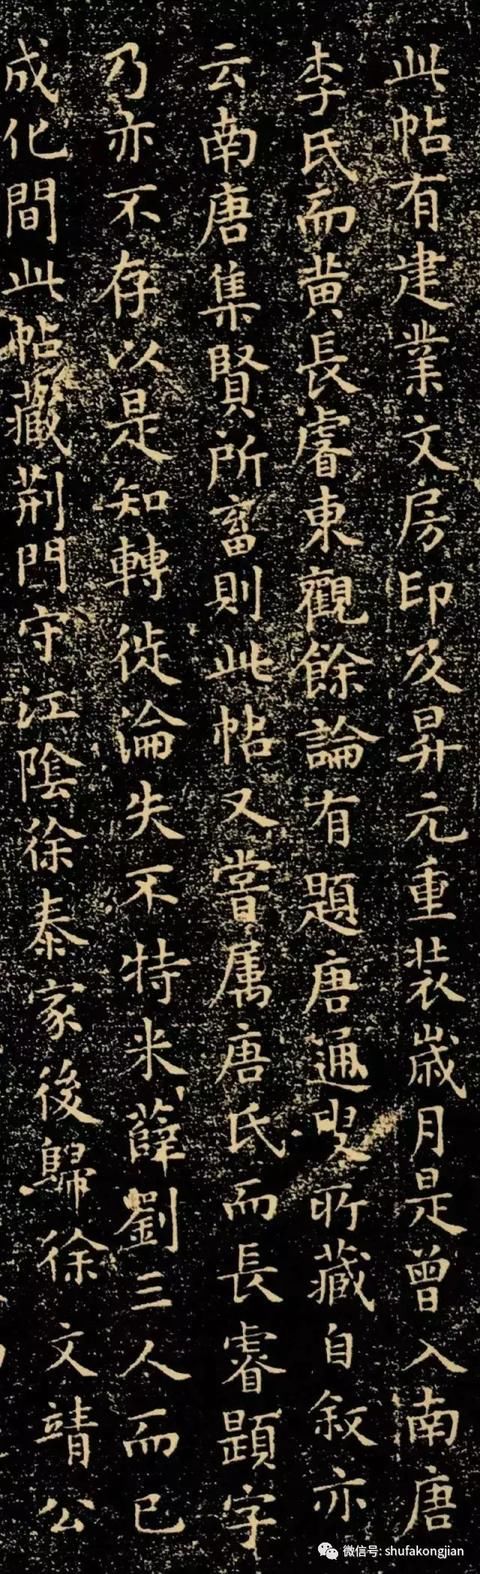 此帖有建業文房印及昇元重装歲月是曾入南唐
李氏而黄長睿東觀餘論有題唐通叟所藏自叙亦
云南唐集賢所畜則此帖又嘗属唐氏而長睿題字
乃亦不存以是知轉徙淪失不特米薛劉三人而已
成化間此帖藏荆門守江陰徐泰家後歸徐文靖公
微信号: shufakongjian